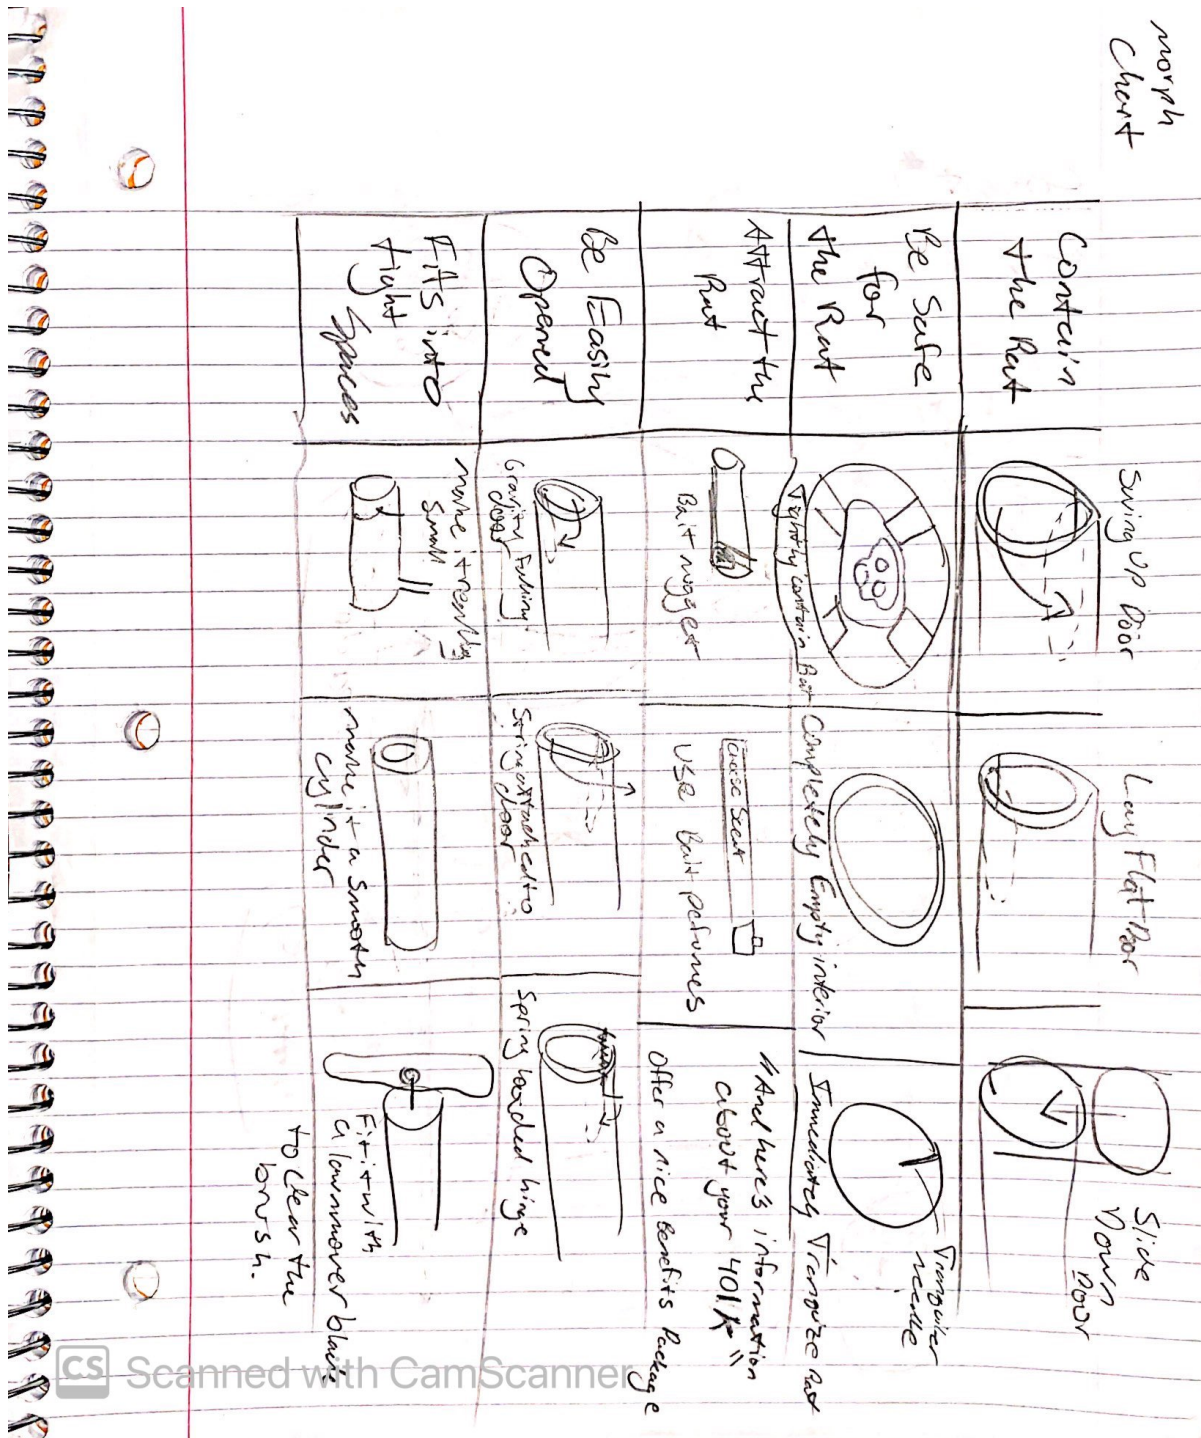 morph
Chart
Contain
the Rat
Swing Up Door
Lay Flat Door
Slide
Down
Door
Be Safe
for
the Rat
Tightly contain Rat
Completely Empty interior
Tranquilizer
needle
Immediately Tranquize Rat
Attract the
Rat
Bait nugget
Use Bait perfumes
"And here's information
about your 401k"
Offer a nice Benefits Package
Be Easily
Opened
Gravity Falling
door
String attached to
door
Spring loaded hinge
Fits into
tight
Spaces
make it really
small
make it a smooth
cylinder
Fit it with
a lawnmower blade
to clear the
brush.
CS Scanned with CamScanner